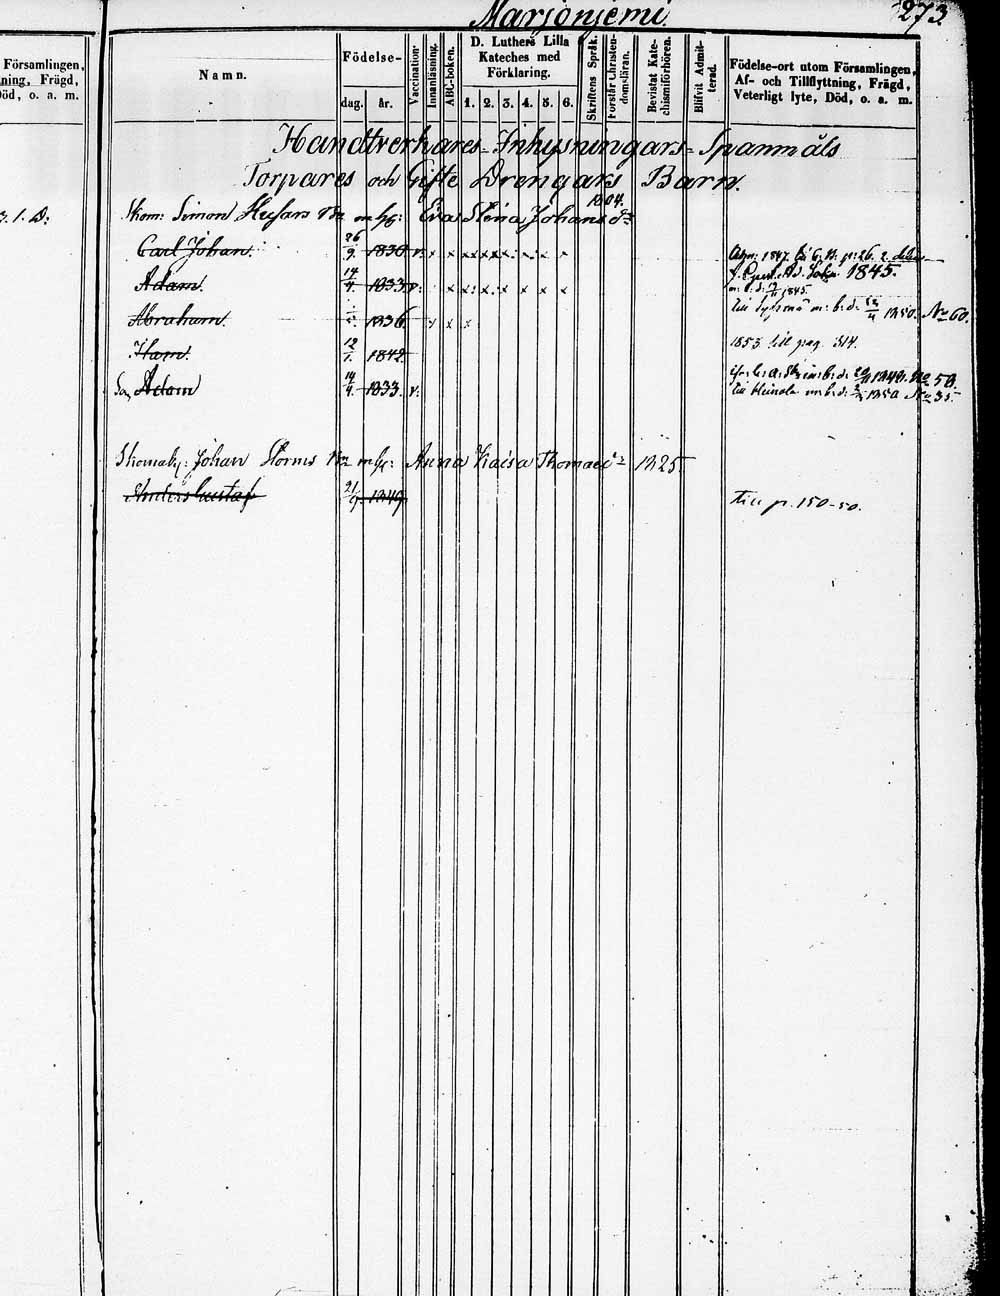 Marjoniemi.
273
Församlingen,
ning, Frägd,
Död, o. a. m.
Namn.
Födelse-
dag. år.
Vaccination.
Innanläsning.
ABC-boken.
D. Luthers Lilla
Kateches med
Förklaring.
1. 2. 3. 4. 5. 6.
Skriftens Språk.
Förstår Christen-
domsläran.
Bevistat Kate-
chismiförhören.
Blifvit Admit-
terad.
Födelse-ort utom Församlingen,
Af- och Tillflyttning, Frägd,
Veterligt lyte, Död, o. a. m.
Handtverkares- Inhysningars- Spanmåls
Torpares och Gifte Drengars Barn.
Skom: Simon Husars m hu: Eva Stina Johans dr 1804.
Carl Johan. 26/9. 1830 v. x x x x x x x x x 1847.
Adam. 14/4. 1833 v. x x x x x x x x 1845.
m: b: d: 1845.
Abraham. 1836 x x x till Sysmä m: b: d: 1850. No 60.
Ham. 12/1. 1842 1853 till pag. 314.
Adam 14/4. 1833. v. m: b: d: No 50.
till Heinola m: b: d: 1850 No 35.
Johan Storms m hu: Anna Kaisa Thomaedr 1825
Anders Gustaf 21/9. 1849 till p. 150-50.